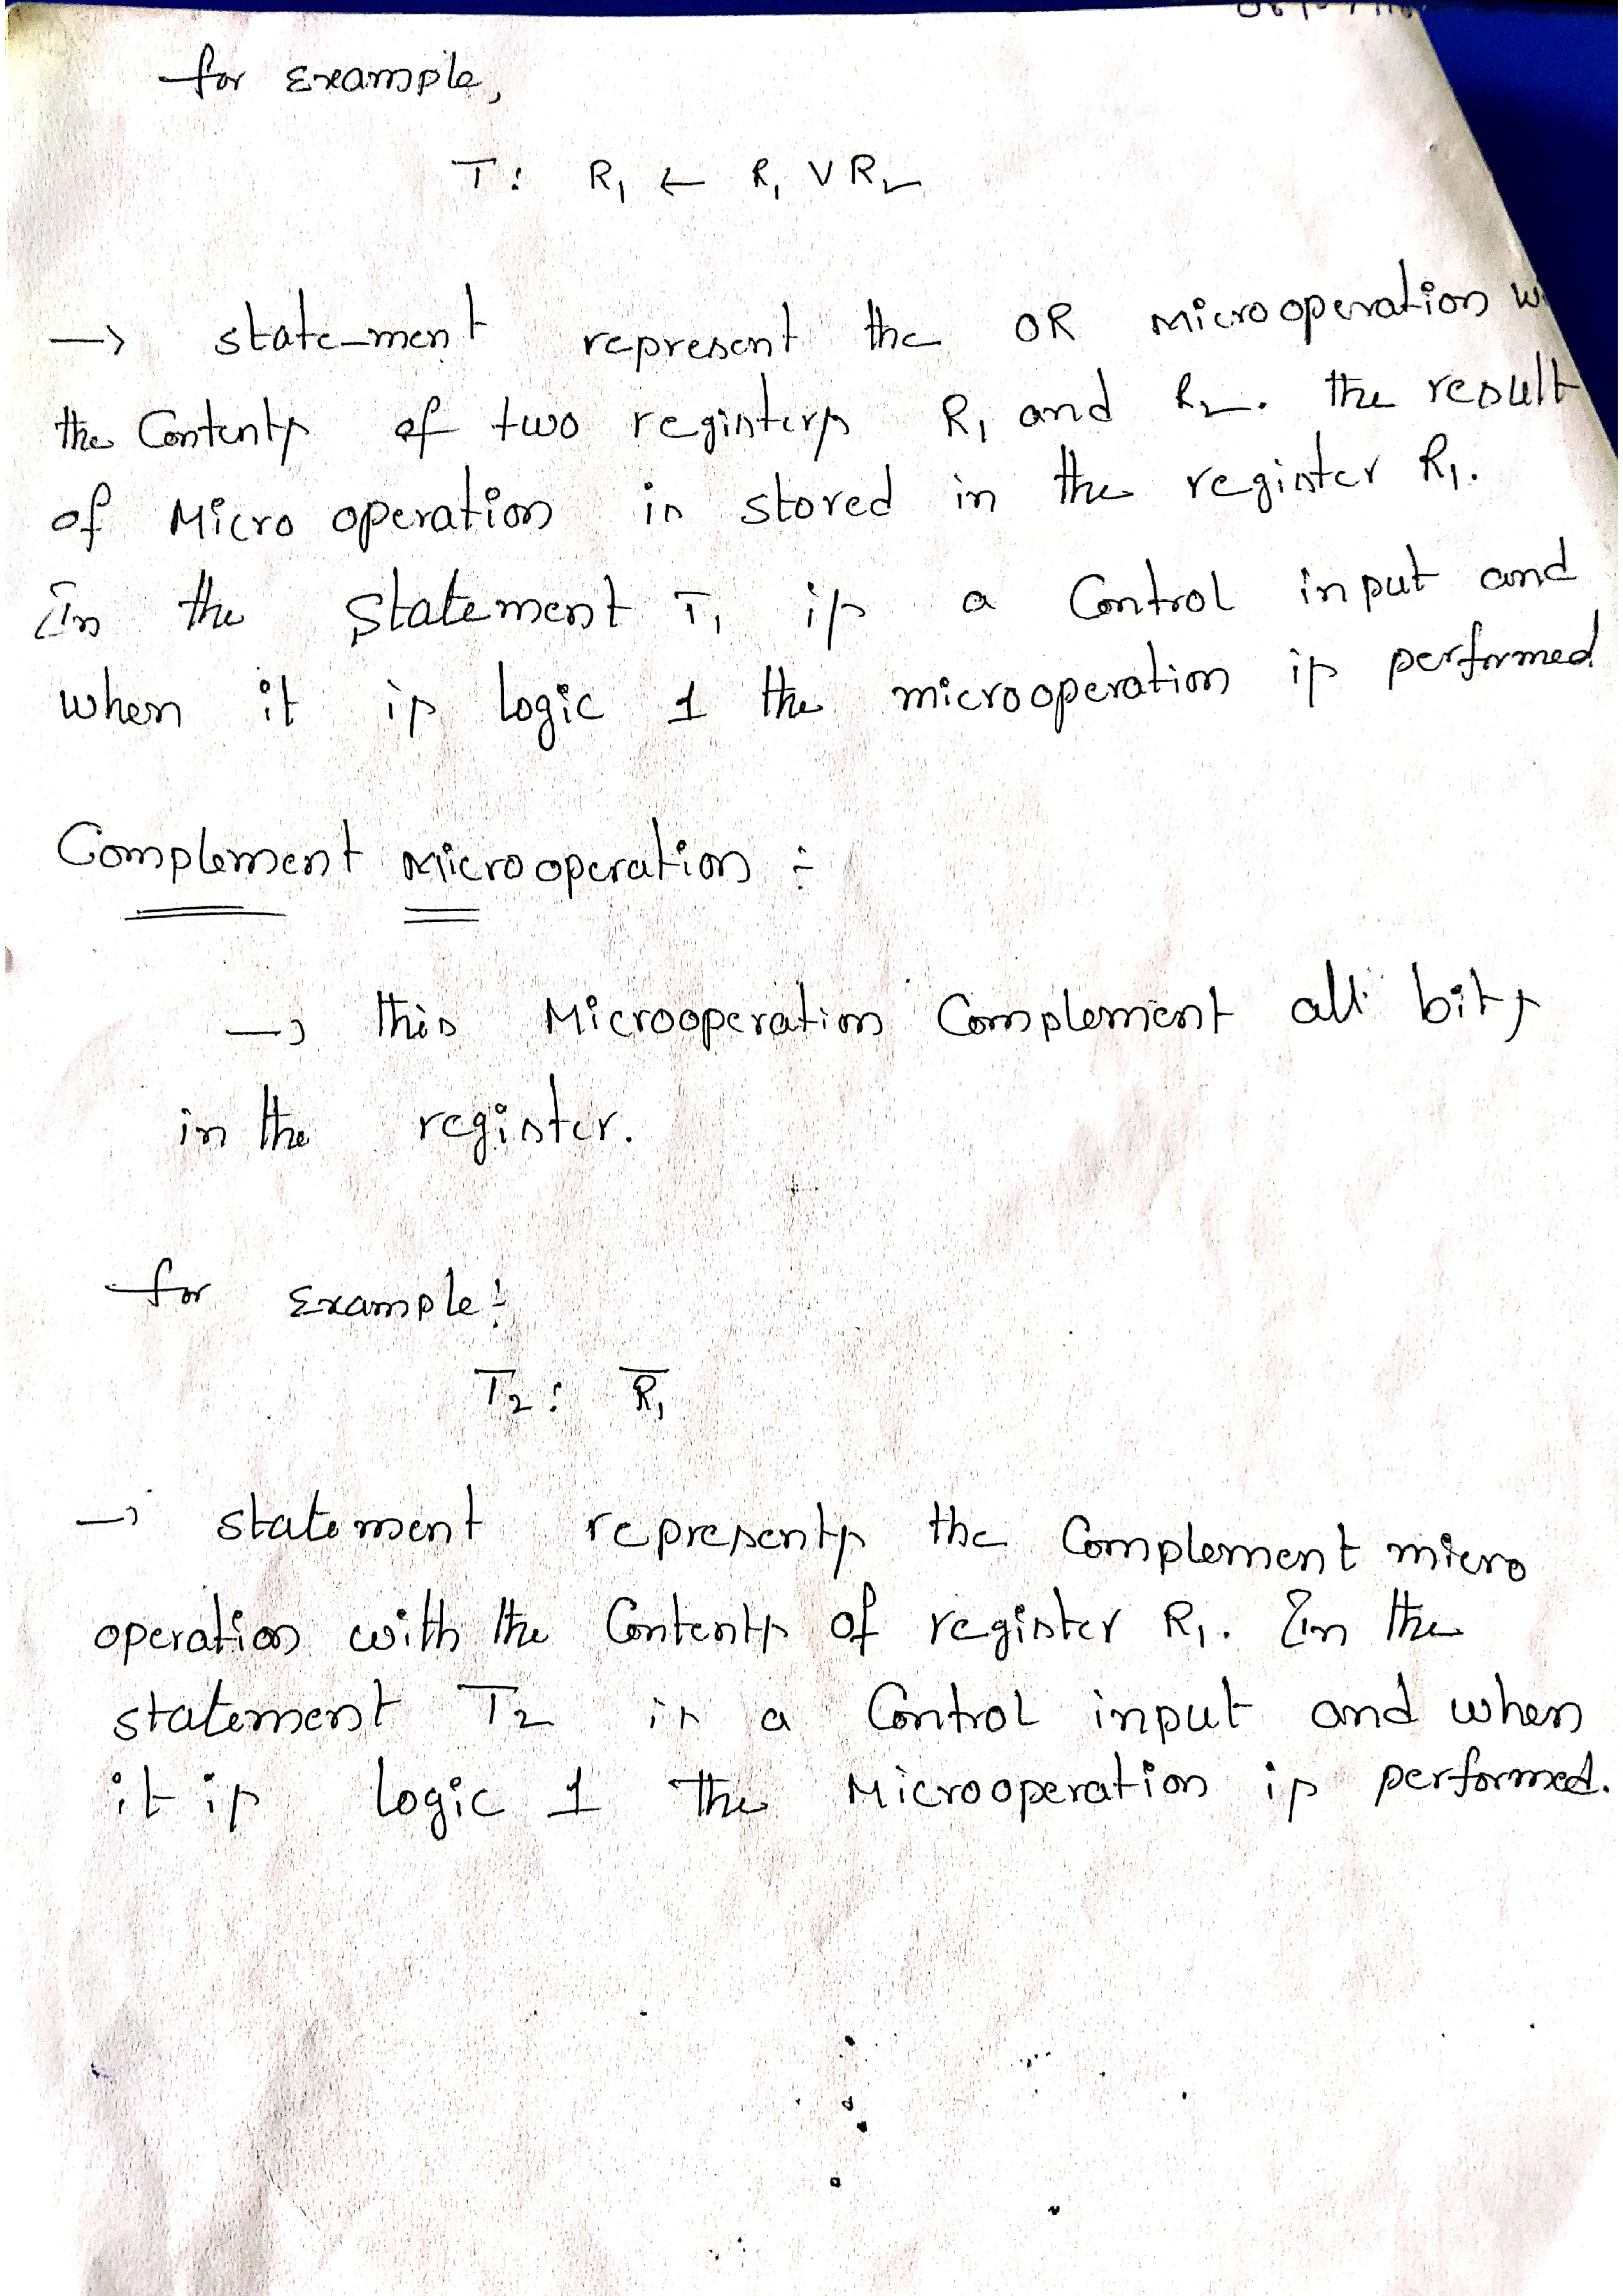 for Example,
T: R₁ ← R₁ ∨ R₂
→ state-ment represent the OR Microoperation
the Contents of two registers R₁ and R₂. the result
of Micro operation is stored in the register R₁.
In the Statement T₁ is a Control input and
when it is logic 1 the microoperation is performed
Complement Microoperation :-
→ this Microoperation Complement all bits
in the register.
for Example :-
T₂: R̅₁
→ statement represents the Complement micro
operation with the Contents of register R₁. In the
statement T₂ is a Control input and when
it is logic 1 the Microoperation is performed.